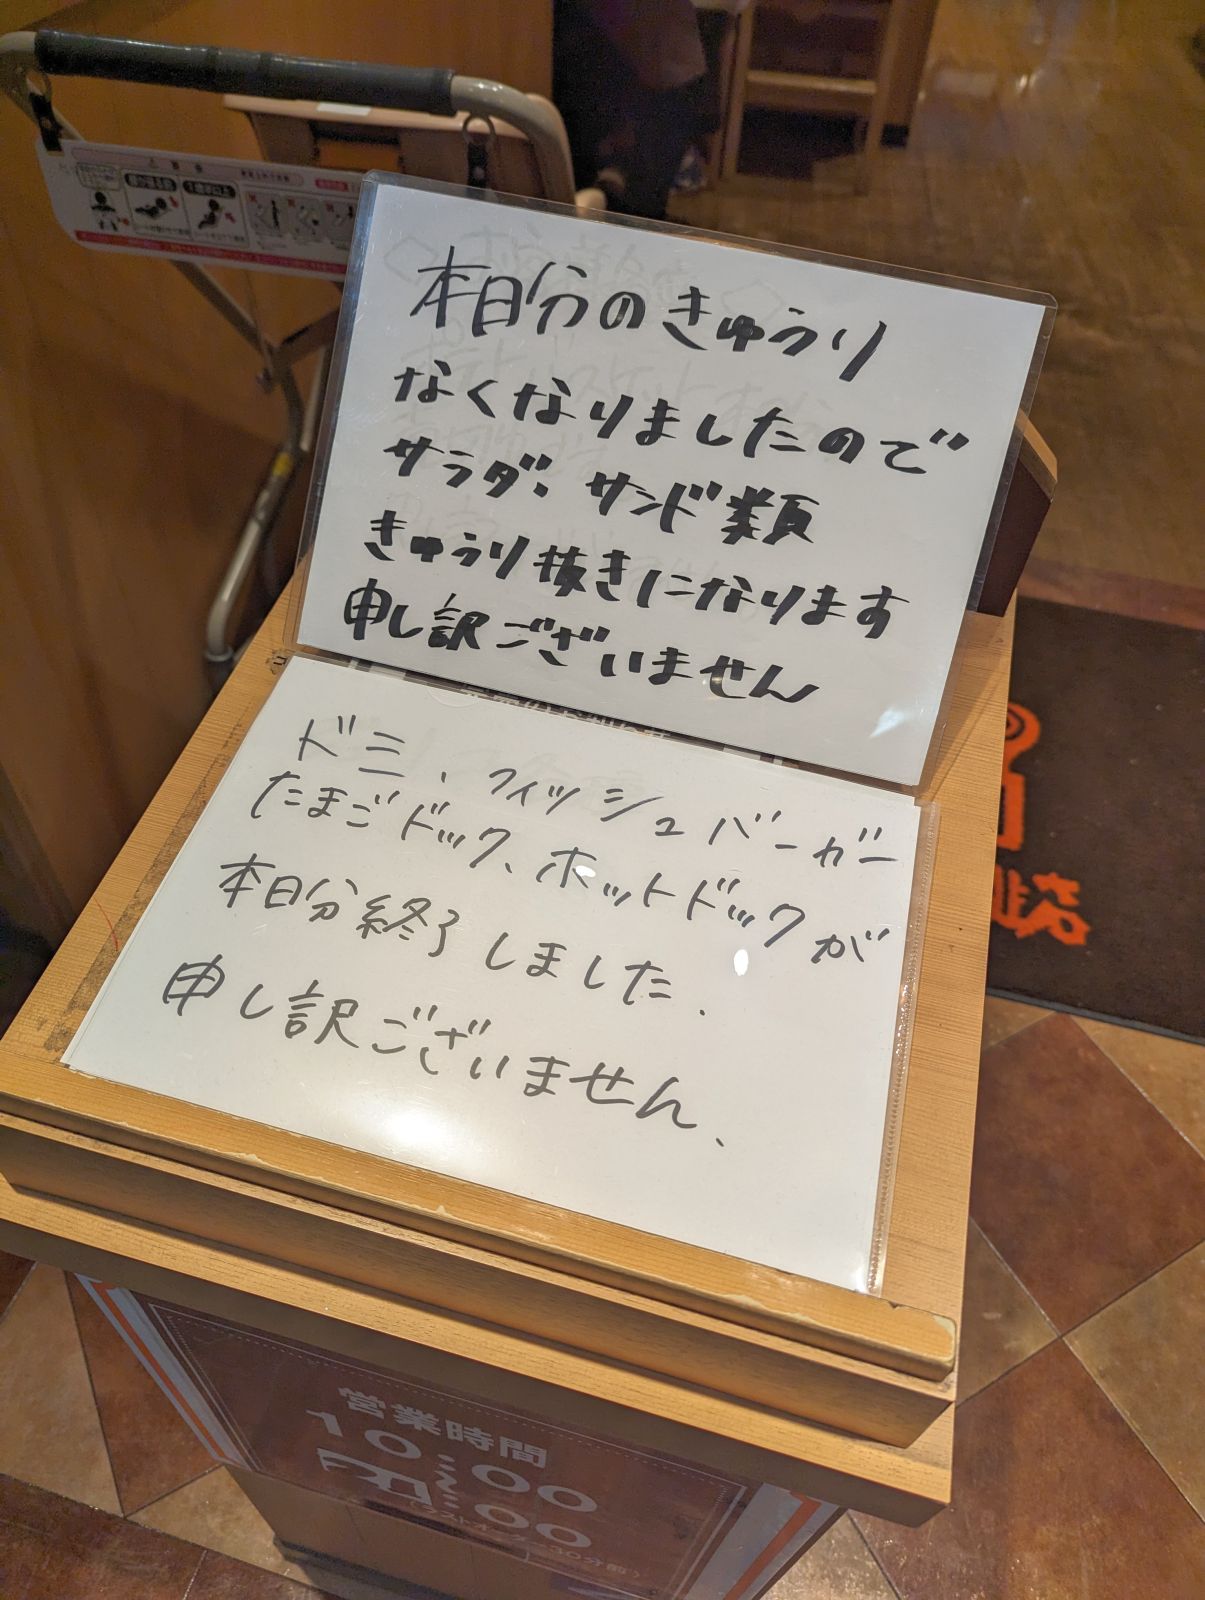 本日分のきゅうり
なくなりましたので
サラダ、サンド類
きゅうり抜きになります
申し訳ございません
ドミ、フィッシュバーガー
たまごドック、ホットドックが
本日分終了しました.
申し訳ございません、
営業時間
10:00
:00